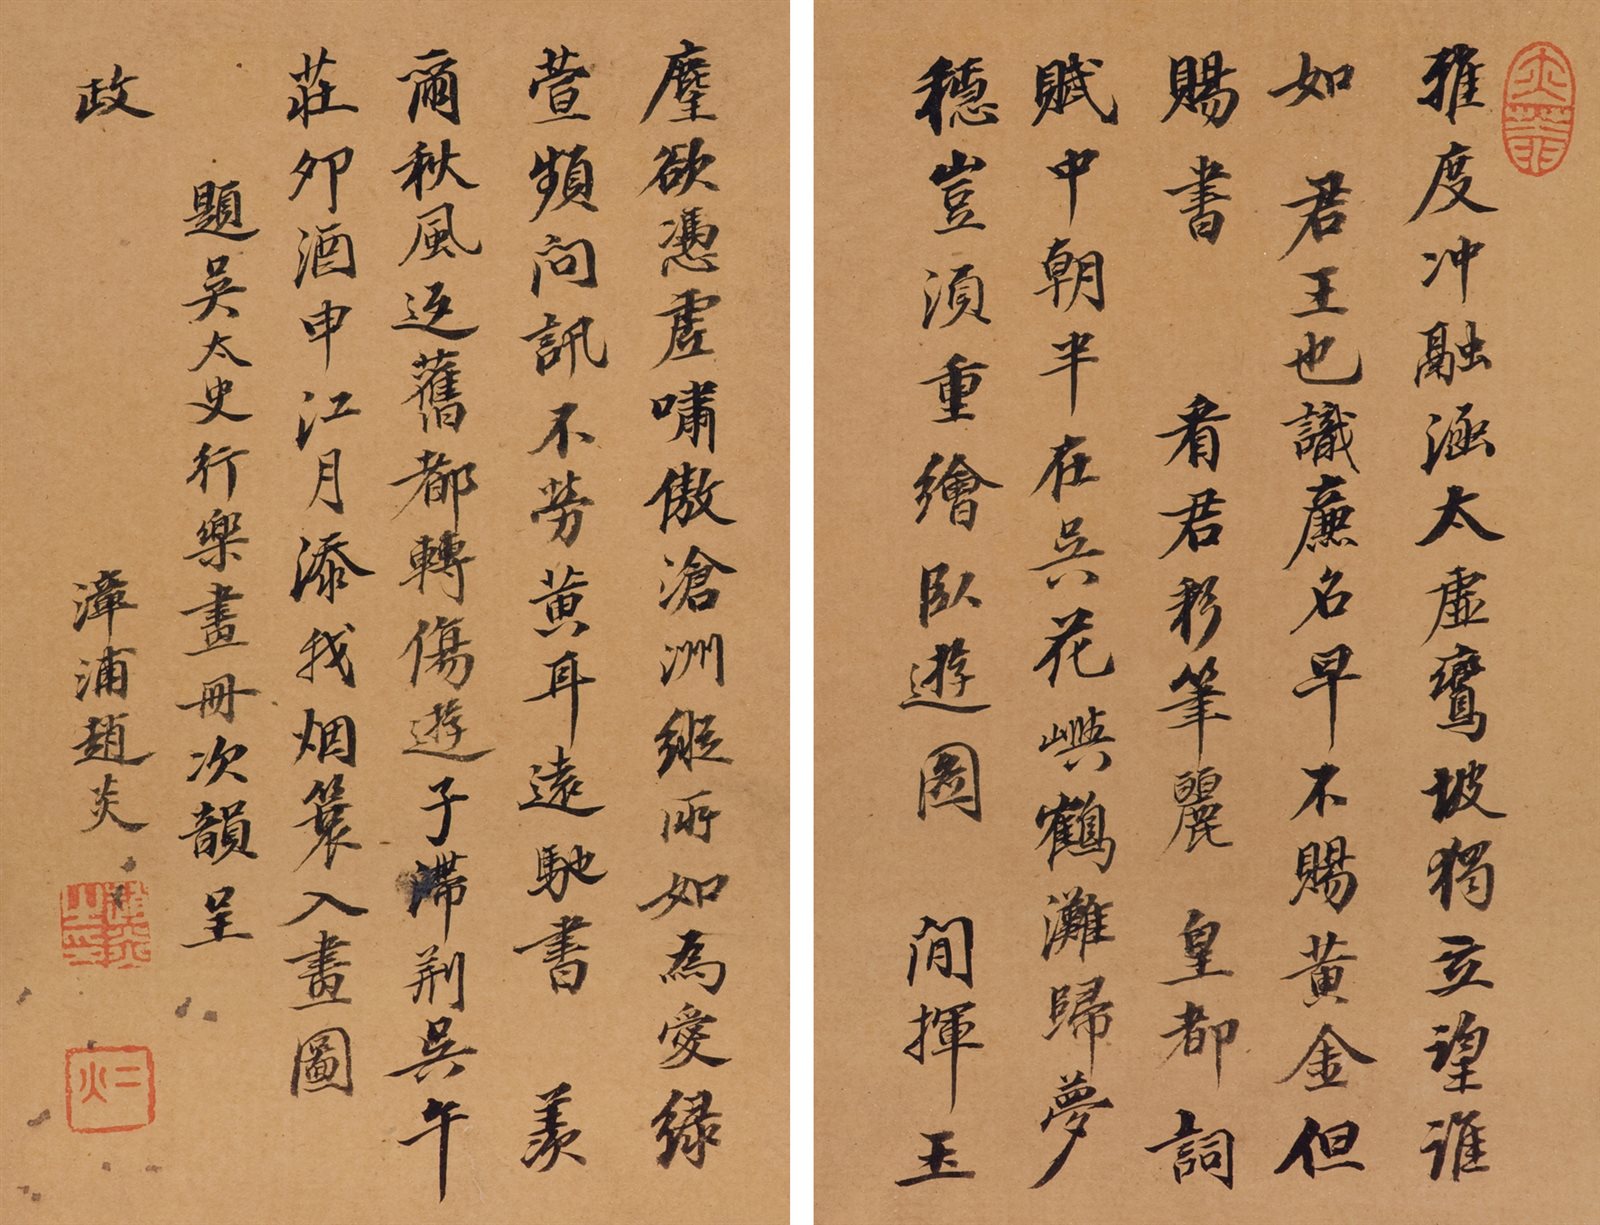 雅度冲融涵太虛鸞坡獨立望誰
如 君王也識廉名早不賜黃金但
賜書 看君彩筆麗 皇都詞
賦中朝半在吳花嶼鶴灘歸夢
穩豈須重繪臥遊圖 閒揮玉
麈欲憑虛嘯傲滄洲縱所如為愛綠
萱頻問訊不勞黃耳遠馳書 羨
爾秋風返舊都轉傷遊子滯荊吳午
莊卯酒申江月添我烟簑入畫圖
題吳太史行樂畫冊次韻呈
政 漳浦趙炎